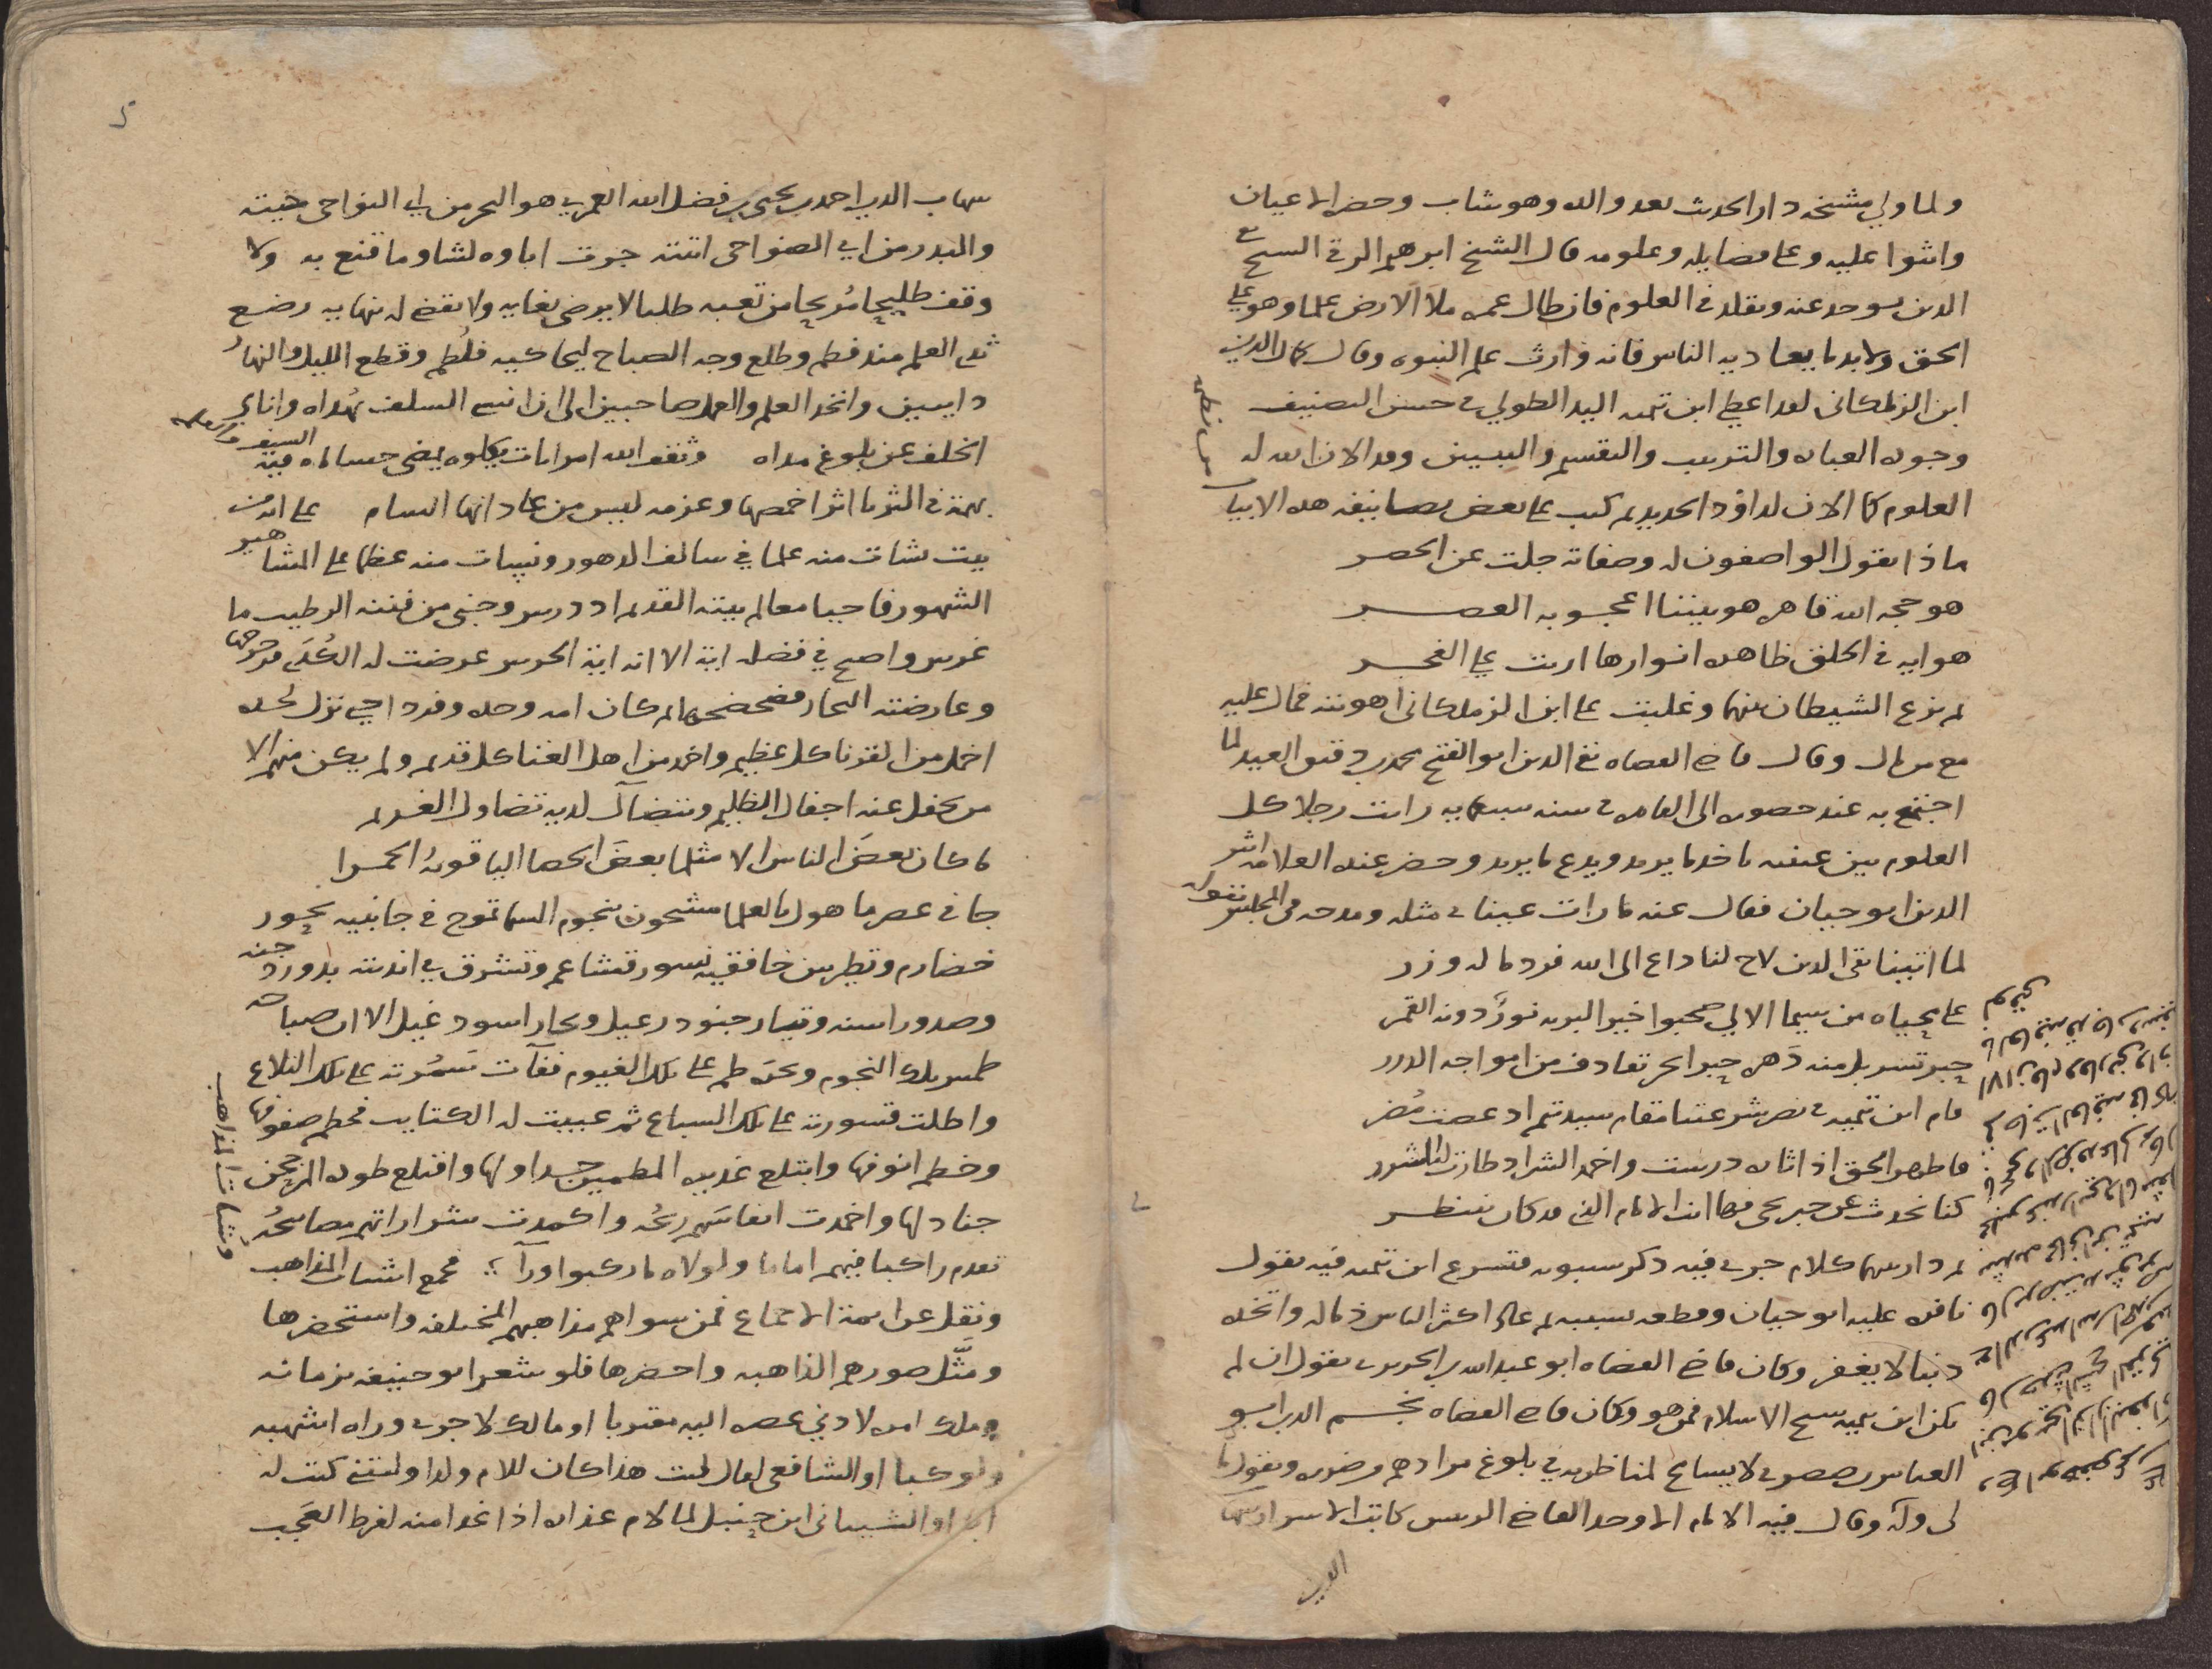 ولما ولي مشيخه دار الحديث بعد والده وهو شاب وحضر الاعيان
واثنوا عليه وعلى فضايله وعلومه قال الشيخ ابرهيم الرقي الشيخ تقي
الدين يوخذ عنه ويقلد في العلوم فان طال عمره ملأ الارض علما وهو على
الحق ولابد ما يعاديه الناس فانه وارث علم النبوه وقال كمال الدين
ابن الزملكاني لقد اعطي ابن تيميه اليد الطولي في حسن التصنيف
وجوده العباره والترتيب والتقسيم والتبيين وقد الان الله له
العلوم كما الان لداوُد الحديد ثم كتب على بعض تصانيفه هذه الابيات من نظمه
ماذا يقول الواصفون له وصفاته جلت عن الحصر
هو حجه الله قاهره هو بيننا اعجوبه العصر
هو ايه في الخلق ظاهره انوارها اربت على الفجر
ثم نزغ الشيطان بينهما وغلبت على ابن الزملكاني اهويته فمال عليه
مع من مال وقال قاضي القضاه تقي الدين ابو الفتح محمد بن دقيق العيد لما
اجتمع به عند حضوره الى القاهره في سنه سبعمايه رايت رجلا كل
العلوم بين عينيه ياخد ما يريد ويدع ما يريد وحضر عنده العلامه اثير
الدين ابو حيان فقال عنه ما رات عيناي مثله ومدحه في المجلس بقوله
لما اتينا تقي الدين لاح لنا داع الى الله فرد ما له وزر
على محياه من سيما الالي صحبوا خير البريه نورٌ دونه القمر
حبر تسربل منه دهره حبرا بحر تقاذف من امواجه الدرر
قام ابن تيميه في نصر شرعتنا مقام سيد تيم اذ عصت مُضر
فاظهر الحق اذ اثاره درست واخمد الشر اذ طارت له الشرر
كنا نحدث عن حبر يجي فها انت الامام الذي قد كان ينتظر
ثم دار بينهما كلام جرى فيه ذكر سيبويه فتسرع ابن تيميه فيه بقول
نافره عليه ابو حيان وقطعه بسببه ثم عاد اكثر الناس ذما له واتخذه
ذنبا لا يغفر وكان قاضي القضاه ابو عبد الله بن الحريري يقول ان لم
يكن ابن تيميه شيخ الاسلام فمن هو وكان قاضي القضاه نجم الدين ابو
العباس بن صصرى لا يسامح لمناظريه في بلوغ مرادهم وضرره ويقول ما
لي وله وقال فيه الامام الاوحد القاضي الرييس كاتب الاسرار
الدين
شهاب الدين احمد بن يحيى بن فضل الله العمري هو البحر من اي النواحى جيته
والبدر من اي الضواحى اتيته جرت اباوه لشاو ما قنع به ولا
وقف طليحا مُريحا من تعبه طلبا لا يرضى بغايه ولا يقضي له نهايه رضع
ثدي العلم منذ فطم وطلع وجه الصباح ليحاكيه فلُطِم وقطع الليل والنهار
دايبين واتخذ العلم والعمل صاحبين الى ان انسى السلف بهُداه واناى
الخلف عن بلوغ مداه وثقف الله امرا بات يكلوه يمضى حساماه فيه السيف والقلم
بهمة في الثريا اثر اخمصها وعزمه ليس من عاداتها السام على انه من
بيت نشات منه علما في سالف الدهور ونشات منه عظما على المشاهير
الشهور فاحيا معالم بيته القديم اذ درس وجنى من فننه الرطيب ما
غرس واصبح في فضله اية الا انه اية الحرس عرضت له الكُدَى فزحزحها
وعارضته البحار فضحضحها ثم كان امه وحده وفردا حتى نزل لحده
اخمل من القرنا كل عظيم واخمد من اهل الفنا كل قديم ولم يكن منهم الا
من يجفل عنه اجفال الظليم ويتضآل لديه تضاول الغريم
ما كان بعضَ الناس الا مثلما بعضَ الحصا الياقوتهُ الحمرا
جا في عصر ماهول بالعلما مشحون بنجوم السما تموج في جانبيه بحور
خضارم وتطير بين خافقيه نسور قشاعم وتشرق في انديته بدور دجنه
وصدور اسنه وتثار جنود رعيل وبحار اسود غيل الا ان صباحه
طمس تلك النجوم وبحره طم على تلك الغيوم ففآت سَمُرته على تلك التلاع
واطلت قسورته على تلك السباع ثم عبيت له الكتايب فحطم صفوفها
وخطم انوفها وابتلع غديره المطمين جداولها واقتلع طوده المرجحن
جنادلها واخمدت انفاسَهم ريحُه واكمدت شراراتهم مصابيحُه
تقدم راكبا فيهم اماما ولولاه ما ركبوا ورآ فجمع اشتات المذاهب وشتات المذاهب
ونقل عن ايمة الاجماع فمن سواهم مذاهبهم المختلفه واستحضرها
ومثّل صورهم الذاهبه واحضرها فلو شعر ابو حنيفه بزمانه
وملك امره لادنى عصره اليه مقتربا او مالك لاجرى وراه اشهبه
ولو كبا او الشافعي لقال ليت هذا كان للام ولدا وليتني كنت له
ابا او الشيباني ابن حنبل لما لام عذاره اذا غدا منه لفرط العَجب